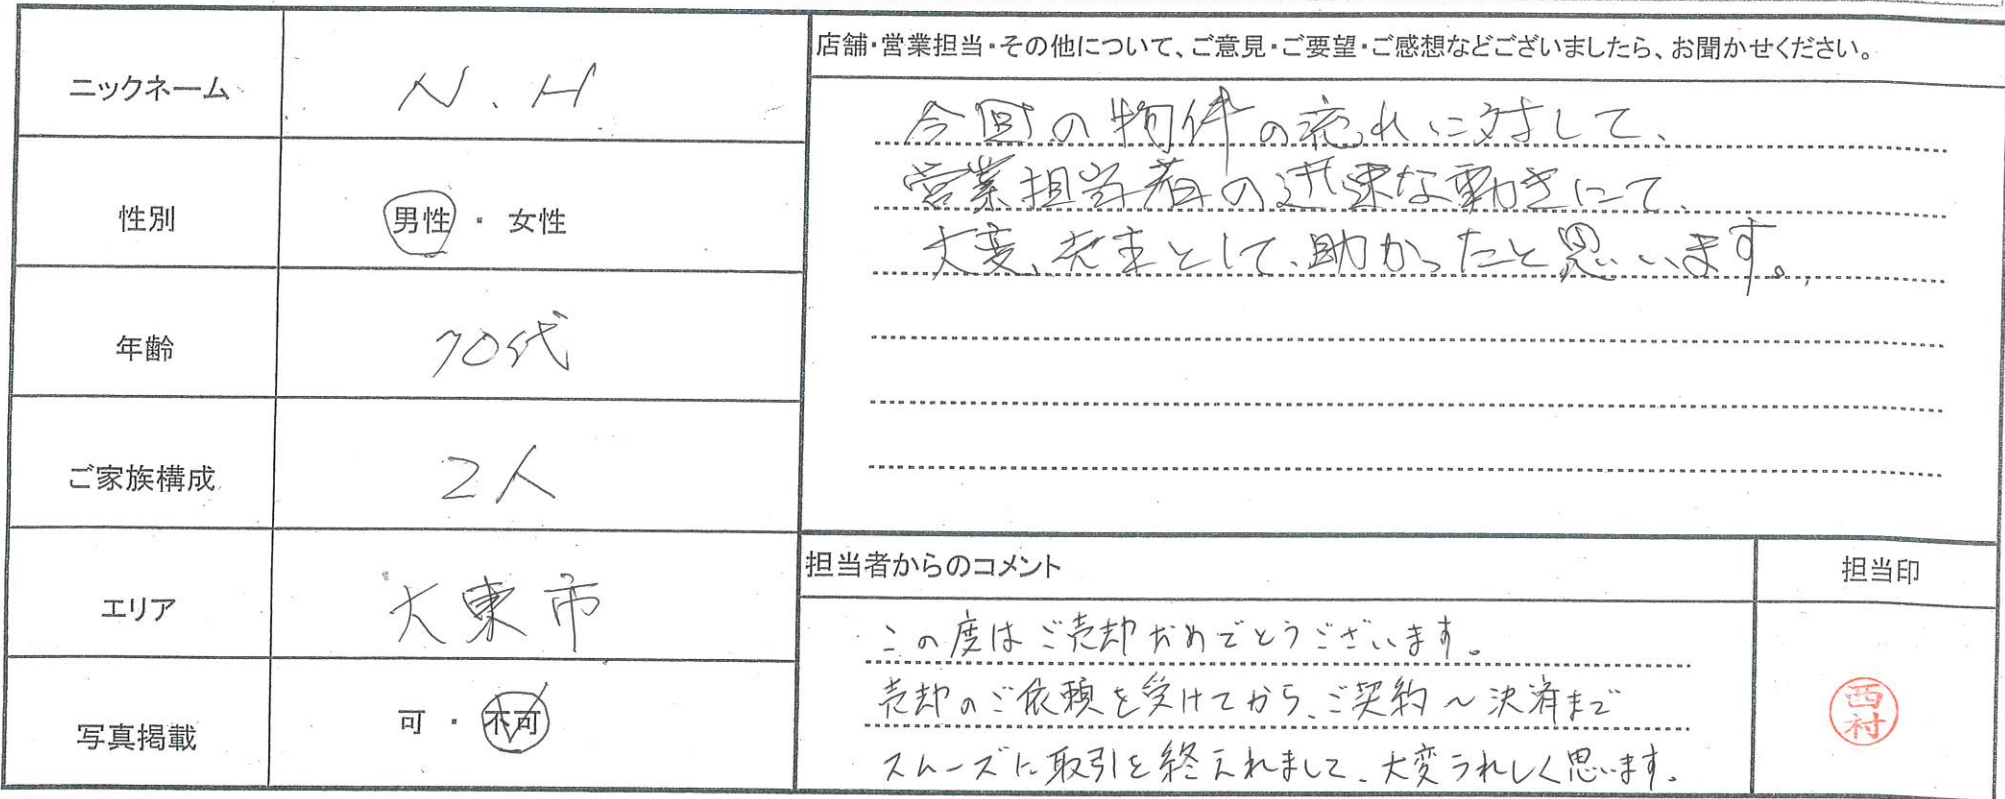 ニックネーム
N.H
性別
男性・女性
年齢
70代
ご家族構成
2人
エリア
大東市
写真掲載
可・不可
店舗・営業担当・その他について、ご意見・ご要望・ご感想などございましたら、お聞かせください。
今回の物件の流れに対して、
営業担当者の迅速な動きにて、
大変、売主として、助かったと思います。
担当者からのコメント
この度はご売却おめでとうございます。
売却のご依頼を受けてから、ご契約～決済まで
スムーズに取引を終えれまして、大変うれしく思います。
担当印
西村